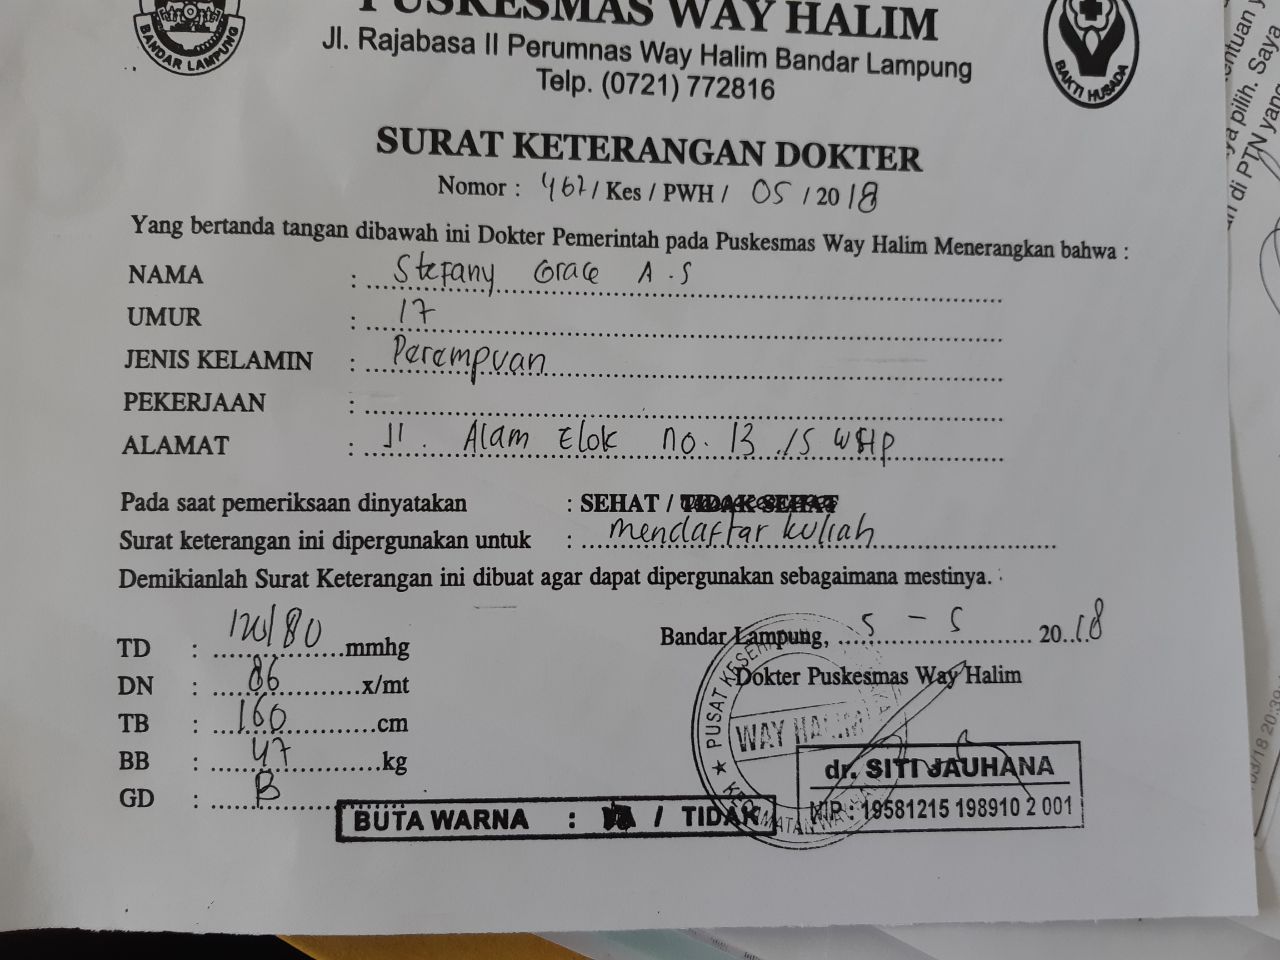 PUSKESMAS WAY HALIM
BANDAR LAMPUNG
Jl. Rajabasa II Perumnas Way Halim Bandar Lampung
Telp. (0721) 772816
BAKTI HUSADA
SURAT KETERANGAN DOKTER
Nomor : 467 / Kes / PWH / 05 / 2018
Yang bertanda tangan dibawah ini Dokter Pemerintah pada Puskesmas Way Halim Menerangkan bahwa :
NAMA : Stefany Grace A.S
UMUR : 17
JENIS KELAMIN : Perempuan
PEKERJAAN :
ALAMAT : Jl. Alam Elok no. 13
Pada saat pemeriksaan dinyatakan : SEHAT / TIDAK SEHAT
Surat keterangan ini dipergunakan untuk : mendaftar kuliah
Demikianlah Surat Keterangan ini dibuat agar dapat dipergunakan sebagaimana mestinya.
TD : 120/80 mmhg
DN : 86 x/mt
TB : 160 cm
BB : 47 kg
GD : B
BUTA WARNA : / TIDAK
Bandar Lampung, 5 - 5 2018
Dokter Puskesmas Way Halim
PUSAT KESEHATAN
WAY HALIM
KECAMATAN WAY HALIM
dr. SITI JAUHANA
NIP : 19581215 198910 2 001
ya pilih. Saya
di PTN yang